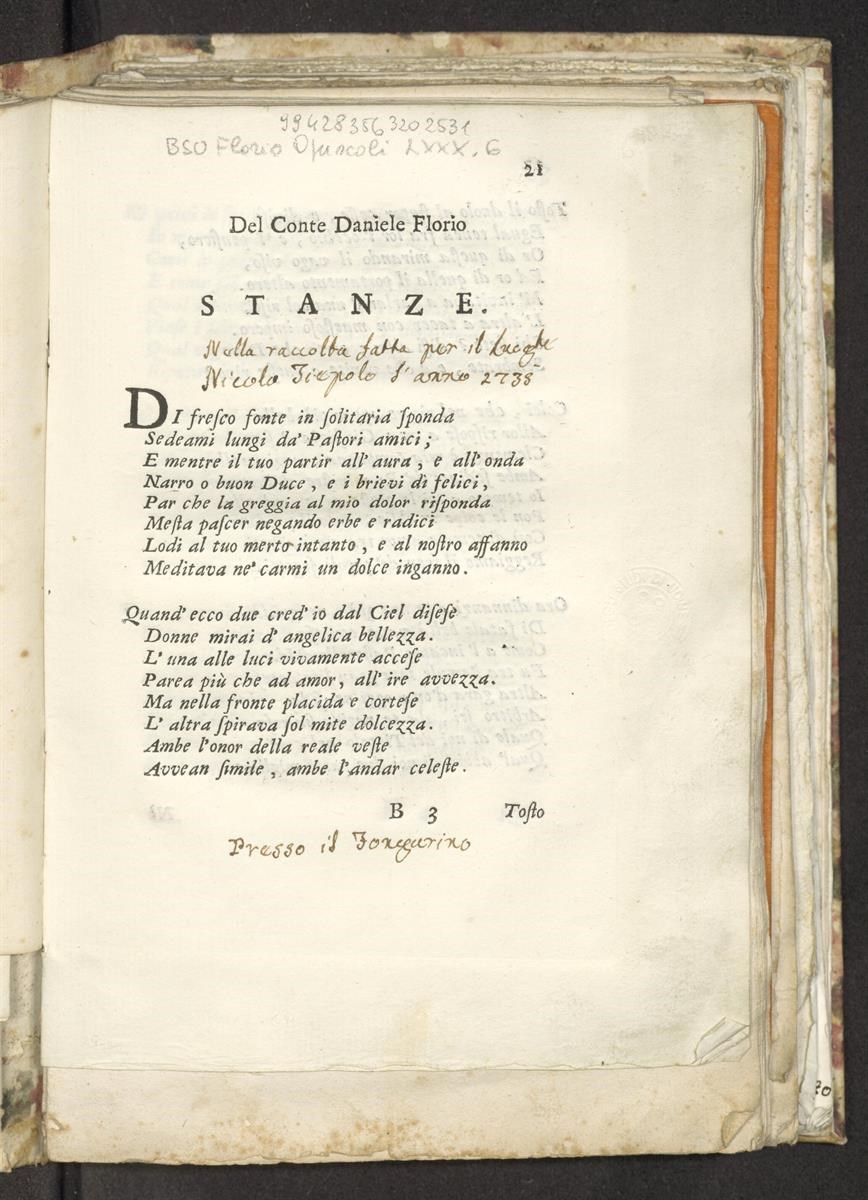 994283563202531
BSO Florio Opuscoli LXXX. 6
21
Del Conte Daniele Florio
STANZE.
Nella raccolta fatta per il
Nicolo Tiepolo l'anno 1738
DI freſco fonte in ſolitaria ſponda
Sedeami lungi da' Paſtori amici;
E mentre il tuo partir all' aura, e all' onda
Narro o buon Duce, e i brievi dì felici,
Par che la greggia al mio dolor riſponda
Meſta paſcer negando erbe e radici
Lodi al tuo merto intanto, e al noſtro affanno
Meditava ne' carmi un dolce inganno.
Quand' ecco due cred' io dal Ciel diſeſe
Donne mirai d' angelica bellezza.
L' una alle luci vivamente acceſe
Parea più che ad amor, all' ire avvezza.
Ma nella fronte placida e corteſe
L' altra ſpirava ſol mite dolcezza.
Ambe l'onor della reale veſte
Avvean ſimile, ambe l'andar celeſte.
B 3 Toſto
Presso il Fongarino